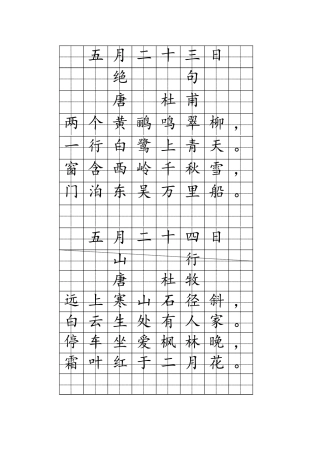 五月二十三日
绝句
唐 杜甫
两个黄鹂鸣翠柳，
一行白鹭上青天。
窗含西岭千秋雪，
门泊东吴万里船。
五月二十四日
山行
唐 杜牧
远上寒山石径斜，
白云生处有人家。
停车坐爱枫林晚，
霜叶红于二月花。